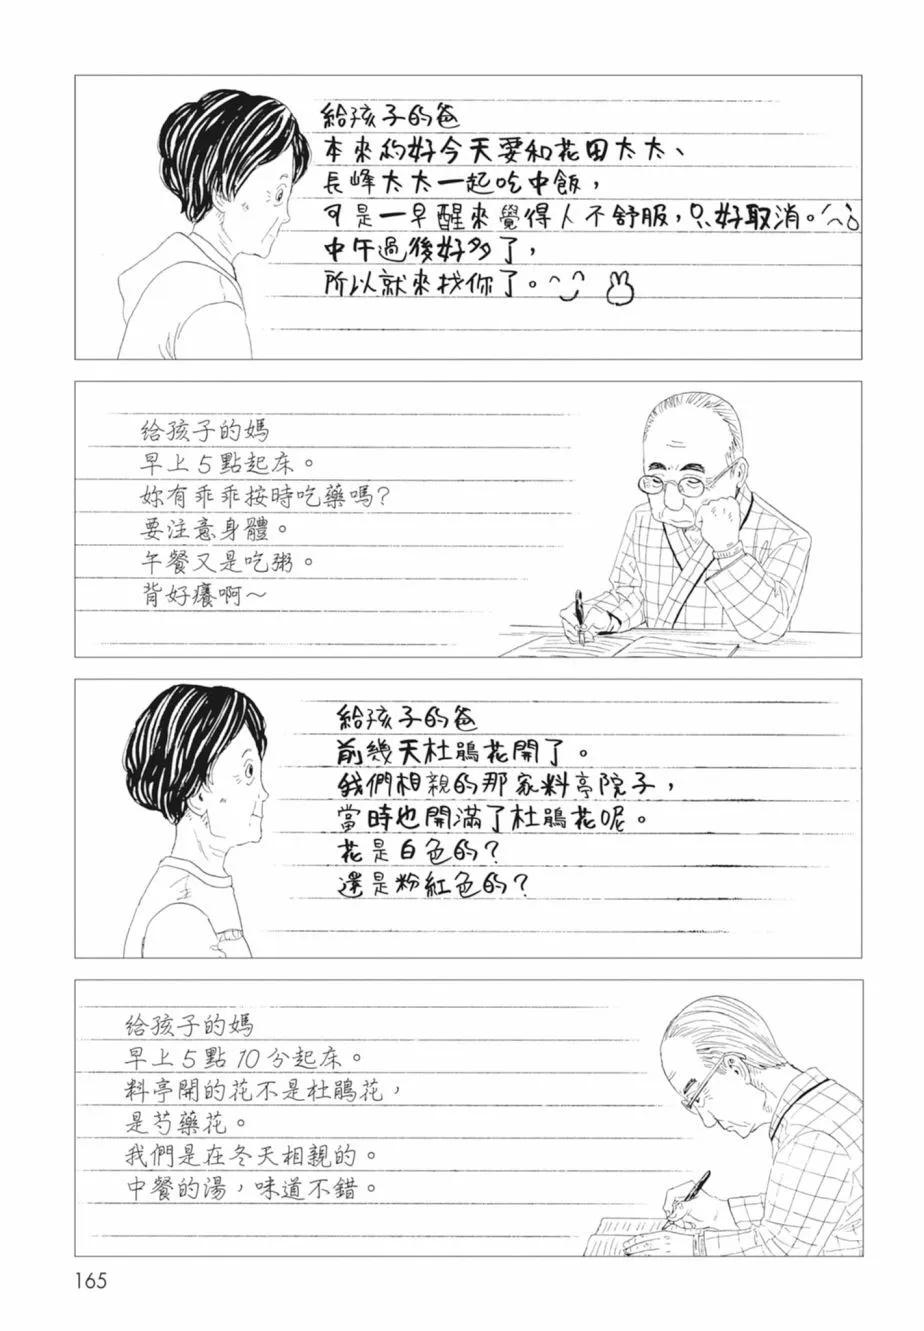 給孩子的爸
本來約好今天要和花田太太、
長峰太太一起吃中飯，
可是一早醒來覺得人不舒服，只好取消。
中午過後好多了，
所以就來找你了。
给孩子的媽
早上5點起床。
妳有乖乖按時吃藥嗎？
要注意身體。
午餐又是吃粥。
背好癢啊～
給孩子的爸
前幾天杜鵑花開了。
我們相親的那家料亭院子，
當時也開滿了杜鵑花呢。
花是白色的？
還是粉紅色的？
给孩子的媽
早上5點10分起床。
料亭開的花不是杜鵑花，
是芍藥花。
我們是在冬天相親的。
中餐的湯，味道不錯。
165